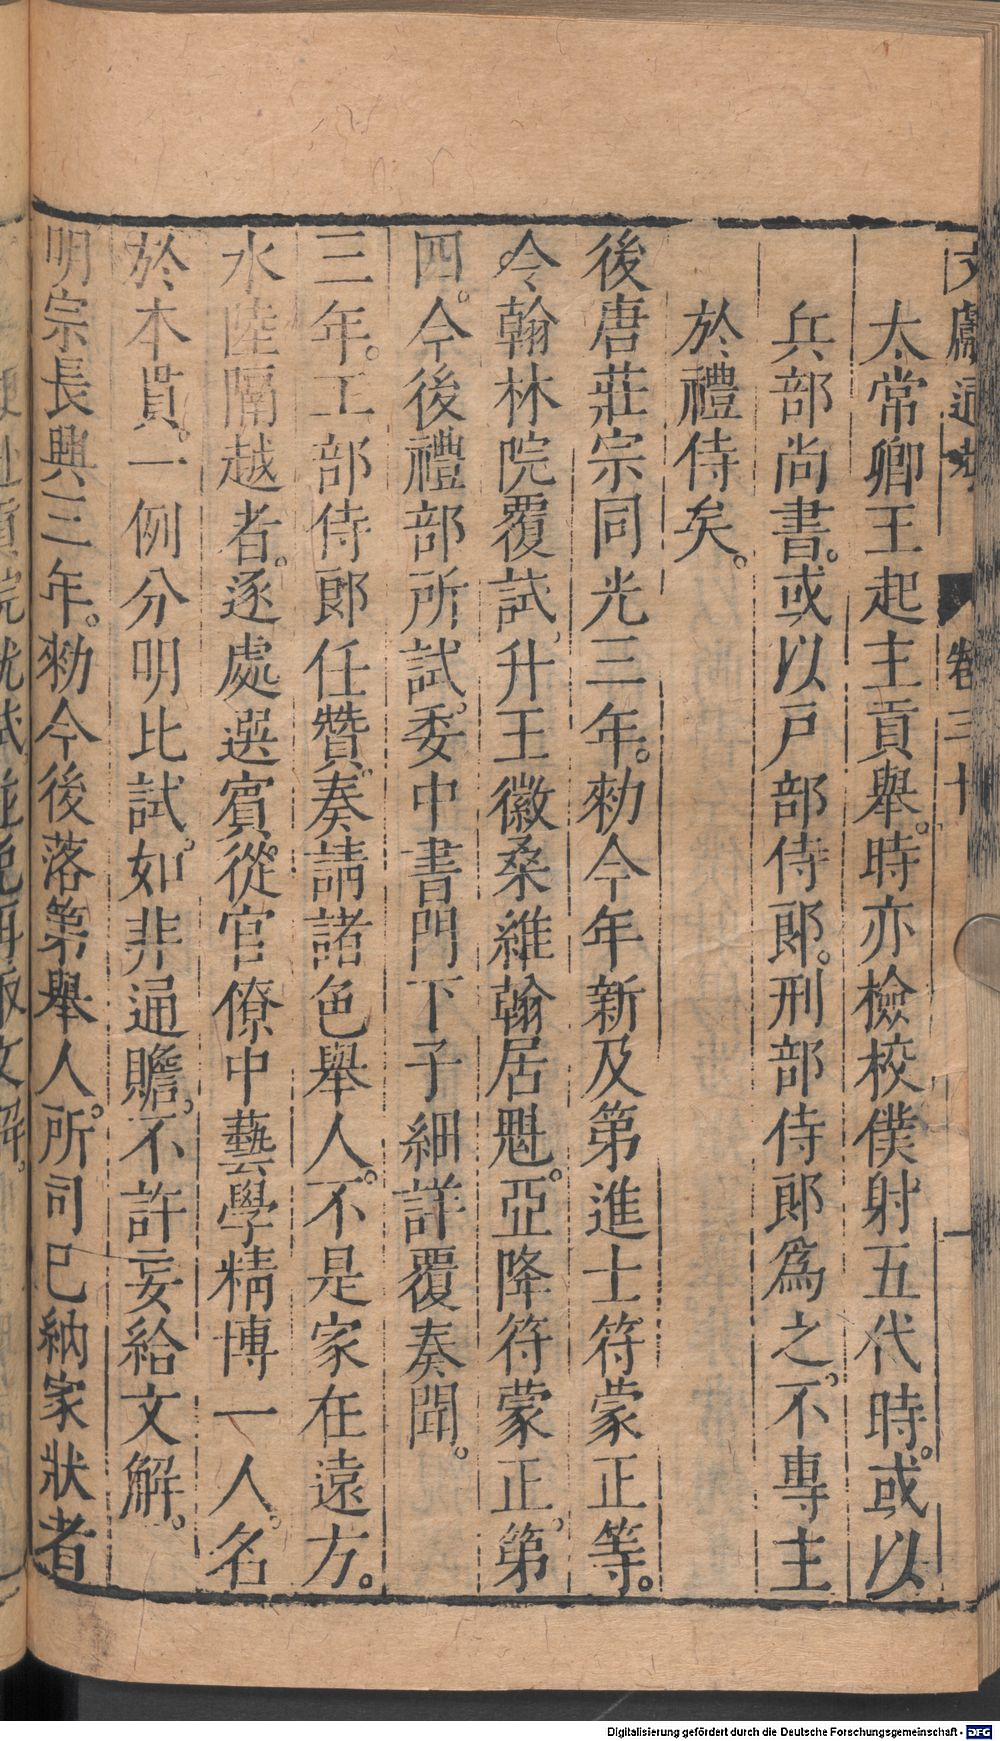 文獻通考 卷三十 一
太常卿王起主貢舉。時亦檢校僕射五代時。或以
兵部尚書。或以戸部侍郎。刑部侍郎爲之。不專主
於禮侍矣。
後唐莊宗同光三年。勑今年新及第進士符蒙正等。
令翰林院覆試。升王徽桑維翰居魁。亞降符蒙正。第
四。今後禮部所試。委中書門下子細詳覆奏聞。
三年。工部侍郎任贊奏請諸色舉人。不是家在遠方。
水陸隔越者。逐處選賓從官僚中藝學精博一人。名
於本貫。一例分明比試。如非通贍。不許妄給文解。
明宗長興三年。勑今後落第舉人。所司已納家狀者
Digitalisierung gefördert durch die Deutsche Forschungsgemeinschaft - DFG